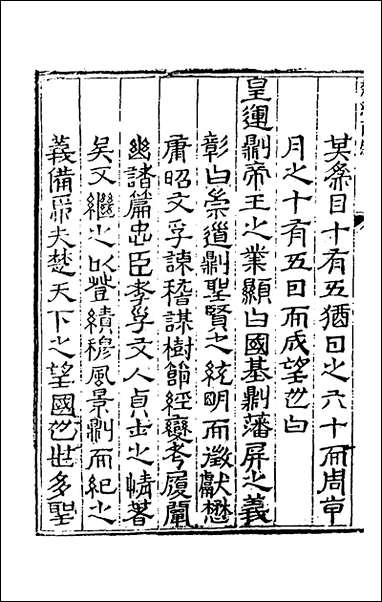 其条目十有五猶日之六十而周
月之十有五日而成望也曰
皇運則帝王之業顯曰國基則藩屏之義
彰曰崇道則聖賢之統明而徵獻懋
庸昭文孚諫稽謀樹節經變考履闡
幽諸篇忠臣孝子文人貞士之情著
矣又繼之以登績穆風景則而紀之
義備焉夫楚天下之望國也世多聖